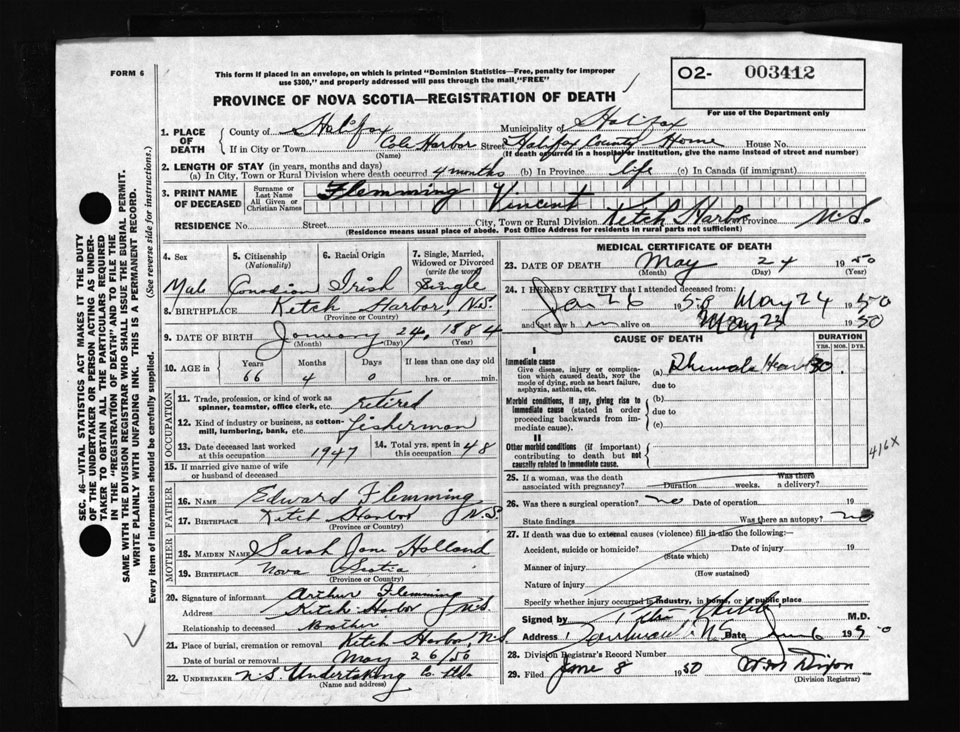 FORM 6
This form if placed in an envelope, on which is printed "Dominion Statistics—Free, penalty for improper
use $300," and properly addressed will pass through the mail "FREE"
O2- 003412
For use of the Department only
PROVINCE OF NOVA SCOTIA—REGISTRATION OF DEATH
1. PLACE OF DEATH
County of Halifax Municipality of Halifax
If in City or Town Cole Harbor Street Halifax County Home House No.
(Name) (If death occurred in a hospital or institution, give the name instead of street and number)
2. LENGTH OF STAY (in years, months and days)
(a) In City, Town or Rural Division where death occurred 4 months (b) In Province life (c) In Canada (if immigrant)
3. PRINT NAME OF DECEASED
Surname or Last Name Flemming
All Given or Christian Names Vincent
RESIDENCE No. Street City, Town or Rural Division Ketch Harbor Province N.S.
(Residence means usual place of abode. Post Office Address for residents in rural parts not sufficient)
4. Sex
5. Citizenship (Nationality)
6. Racial Origin
7. Single, Married, Widowed or Divorced (write the word)
Male Canadian Irish Single
8. BIRTHPLACE Ketch Harbor, N.S.
(Province or Country)
9. DATE OF BIRTH January 24, 1884
(Month) (Day) (Year)
10. AGE in Years Months Days If less than one day old
66 4 0 hrs. or min.
OCCUPATION
11. Trade, profession, or kind of work as
spinner, teamster, office clerk, etc. retired
12. Kind of industry or business, as cotton-
mill, lumbering, bank, etc. fisherman
13. Date deceased last worked
at this occupation 1947
14. Total yrs. spent in
this occupation 48
15. If married give name of wife
or husband of deceased
FATHER
16. NAME Edward Flemming
17. BIRTHPLACE Ketch Harbor N.S.
(Province or Country)
MOTHER
18. MAIDEN NAME Sarah Jane Holland
19. BIRTHPLACE Nova Scotia
(Province or Country)
20. Signature of informant Arthur Flemming
Address Ketch Harbor N.S.
Relationship to deceased Brother
21. Place of burial, cremation or removal Ketch Harbor, N.S.
Date of burial or removal May 26/50
22. UNDERTAKER N.S. Undertaking Co. Ltd.
(Name and address)
MEDICAL CERTIFICATE OF DEATH
23. DATE OF DEATH May 24 1950
(Month) (Day) (Year)
24. I HEREBY CERTIFY that I attended deceased from:
Jan 26 1950 May 24 1950
and last saw h im alive on May 23 1950
CAUSE OF DEATH
DURATION
YRS. MOS. DYS.
I
Immediate cause
Give disease, injury or complica-
tion which caused death, NOT the
mode of dying, such as heart failure,
asphyxia, asthenia, etc.
(a) Heart 30
due to
Morbid conditions, if any, giving rise to
immediate cause (stated in order
proceeding backwards from im-
mediate cause).
(b)
due to
(c)
II
Other morbid conditions (if important)
contributing to death but not
causally related to immediate cause.
416X
25. If a woman, was the death
associated with pregnancy? Duration weeks. Was there
a delivery?
26. Was there a surgical operation? no Date of operation 19
State findings Was there an autopsy? no
27. If death was due to external causes (violence) fill in also the following:—
Accident, suicide or homicide? Date of injury 19
(State which)
Manner of injury
(How sustained)
Nature of injury
Specify whether injury occurred in industry, in home, or in public place
Signed by M.D.
Address N.S. Date June 6 1950
28. Division Registrar's Record Number
29. Filed June 8 1950 Dixon
(Division Registrar)
SEC. 46—VITAL STATISTICS ACT MAKES IT THE DUTY
OF THE UNDERTAKER OR PERSON ACTING AS UNDER-
TAKER TO OBTAIN ALL THE PARTICULARS REQUIRED
IN THE "REGISTRATION OF DEATH" AND TO FILE THE
SAME WITH THE DIVISION REGISTRAR WHO SHALL ISSUE THE BURIAL PERMIT.
WRITE PLAINLY WITH UNFADING INK. THIS IS A PERMANENT RECORD.
Every item of information should be carefully supplied. (See reverse side for instructions.)